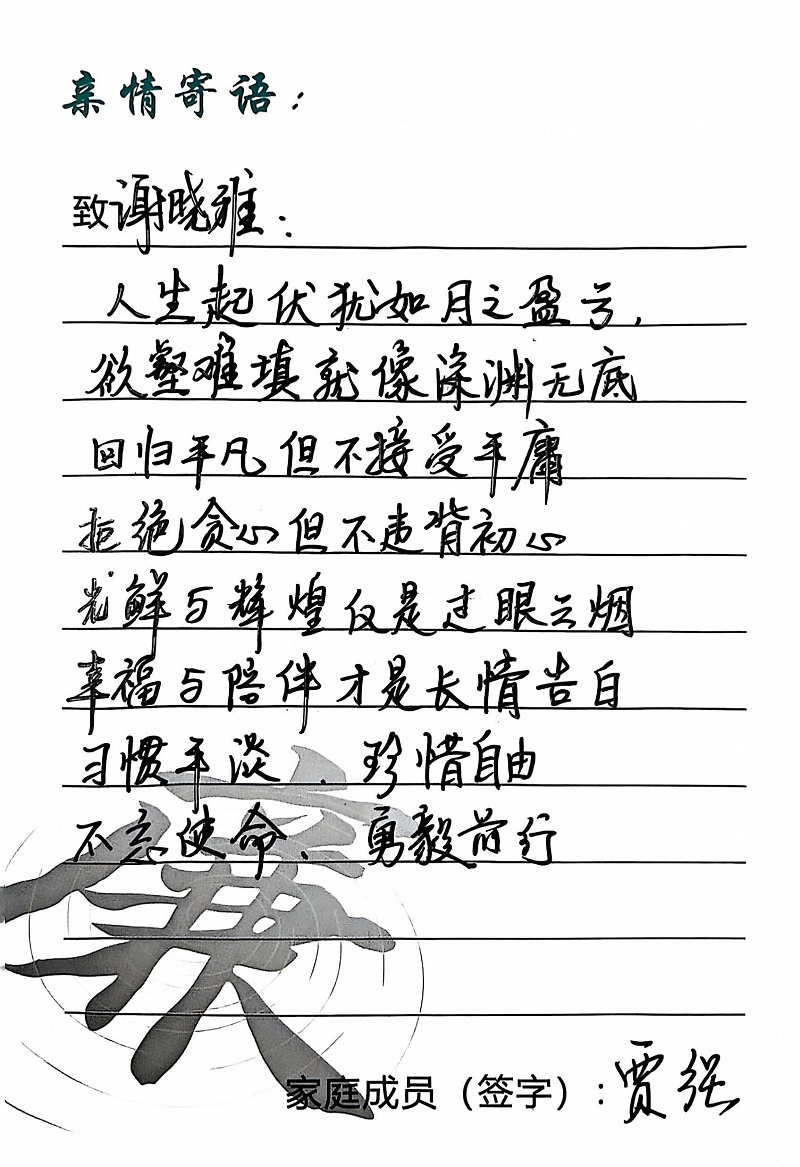 亲情寄语：
致谢晓雅：
人生起伏犹如月之盈亏，
欲壑难填就像深渊无底
回归平凡但不接受平庸
拒绝贪心但不违背初心
光鲜与辉煌仅是过眼云烟
幸福与陪伴才是长情告白
习惯平淡、珍惜自由
不忘使命、勇毅前行
廉
家庭成员（签字）：贾强